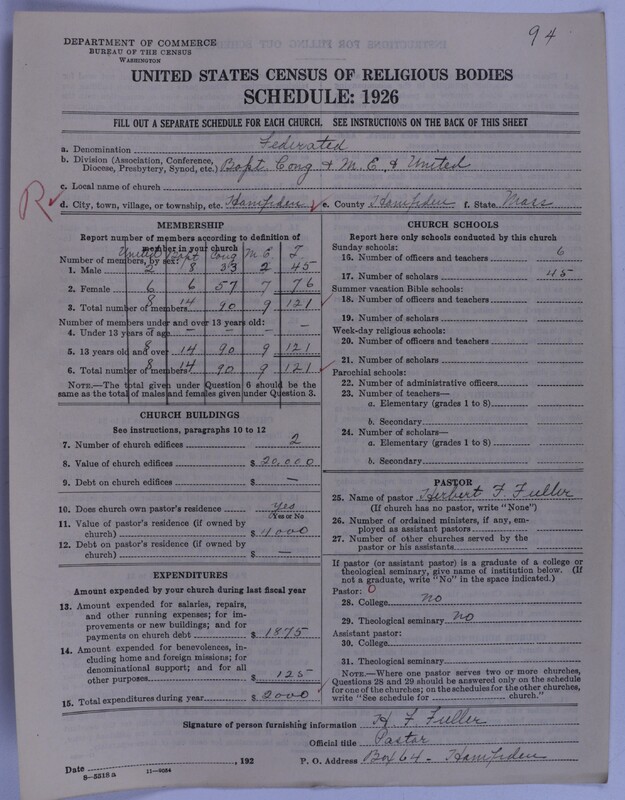 94
DEPARTMENT OF COMMERCE
BUREAU OF THE CENSUS
WASHINGTON
UNITED STATES CENSUS OF RELIGIOUS BODIES
SCHEDULE: 1926
FILL OUT A SEPARATE SCHEDULE FOR EACH CHURCH. SEE INSTRUCTIONS ON THE BACK OF THIS SHEET
a. Denomination Federated
b. Division (Association, Conference, Diocese, Presbytery, Synod, etc.) Bapt. Cong & M. E. & United
c. Local name of church
R d. City, town, village, or township, etc. Hampden e. County Hampden f. State Mass
MEMBERSHIP
Report number of members according to definition of member in your church
Number of members, by sex: United Bapt Cong M. E. T.
1. Male 2 8 33 2 45
2. Female 6 6 57 7 76
3. Total number of members 8 14 90 9 121
Number of members under and over 13 years old:
4. Under 13 years of age — — — — —
5. 13 years old and over 8 14 90 9 121
6. Total number of members 8 14 90 9 121
NOTE.—The total given under Question 6 should be the same as the total of males and females given under Question 3.
CHURCH BUILDINGS
See instructions, paragraphs 10 to 12
7. Number of church edifices 2
8. Value of church edifices $ 20,000
9. Debt on church edifices $ —
10. Does church own pastor's residence yes
(Yes or No)
11. Value of pastor's residence (if owned by church) $ 1000
12. Debt on pastor's residence (if owned by church) $ —
EXPENDITURES
Amount expended by your church during last fiscal year
13. Amount expended for salaries, repairs, and other running expenses; for improvements or new buildings; and for payments on church debt $ 1875
14. Amount expended for benevolences, including home and foreign missions; for denominational support; and for all other purposes $ 125
15. Total expenditures during year $ 2000
CHURCH SCHOOLS
Report here only schools conducted by this church
Sunday schools:
16. Number of officers and teachers 6
17. Number of scholars 45
Summer vacation Bible schools:
18. Number of officers and teachers
19. Number of scholars
Week-day religious schools:
20. Number of officers and teachers
21. Number of scholars
Parochial schools:
22. Number of administrative officers
23. Number of teachers—
a. Elementary (grades 1 to 8)
b. Secondary
24. Number of scholars—
a. Elementary (grades 1 to 8)
b. Secondary
PASTOR
25. Name of pastor Herbert F. Fuller
(If church has no pastor, write "None")
26. Number of ordained ministers, if any, employed as assistant pastors
27. Number of other churches served by the pastor or his assistants
If pastor (or assistant pastor) is a graduate of a college or theological seminary, give name of institution below. (If not a graduate, write "No" in the space indicated.)
Pastor: 0
28. College no
29. Theological seminary no
Assistant pastor:
30. College
31. Theological seminary
NOTE.—Where one pastor serves two or more churches, Questions 28 and 29 should be answered only on the schedule for one of the churches; on the schedules for the other churches, write "See schedule for church."
Signature of person furnishing information H. F. Fuller
Official title Pastor
Date , 192 P. O. Address Box 64 - Hampden
8-5518a 11-9054